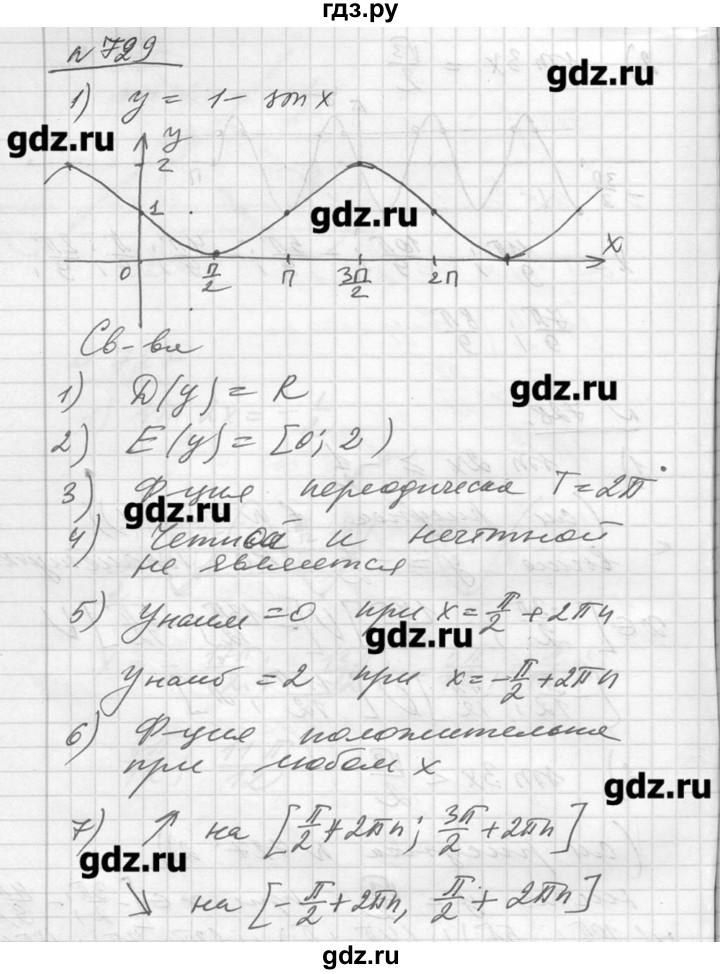 гдз.ру
n 729
gdz.ru
1) y = 1 - sin x
gdz.ru
y
2
1
gdz.ru
x
0 π/2 π 3π/2 2π
Св-ва
gdz.ru
1) D(y) = R
2) E(y) = [0; 2)
3) Ф-ция периодическая T = 2π
gdz.ru
4) Четной и нечётной
не является
5) y наим = 0 при x = π/2 + 2πn
gdz.ru
y наиб = 2 при x = -π/2 + 2πn
6) Ф-ция положительна
при любом x
gdz.ru
7) ↗ на [π/2 + 2πn; 3π/2 + 2πn]
gdz.ru
↘ на [-π/2 + 2πn, π/2 + 2πn]
gdz.ru